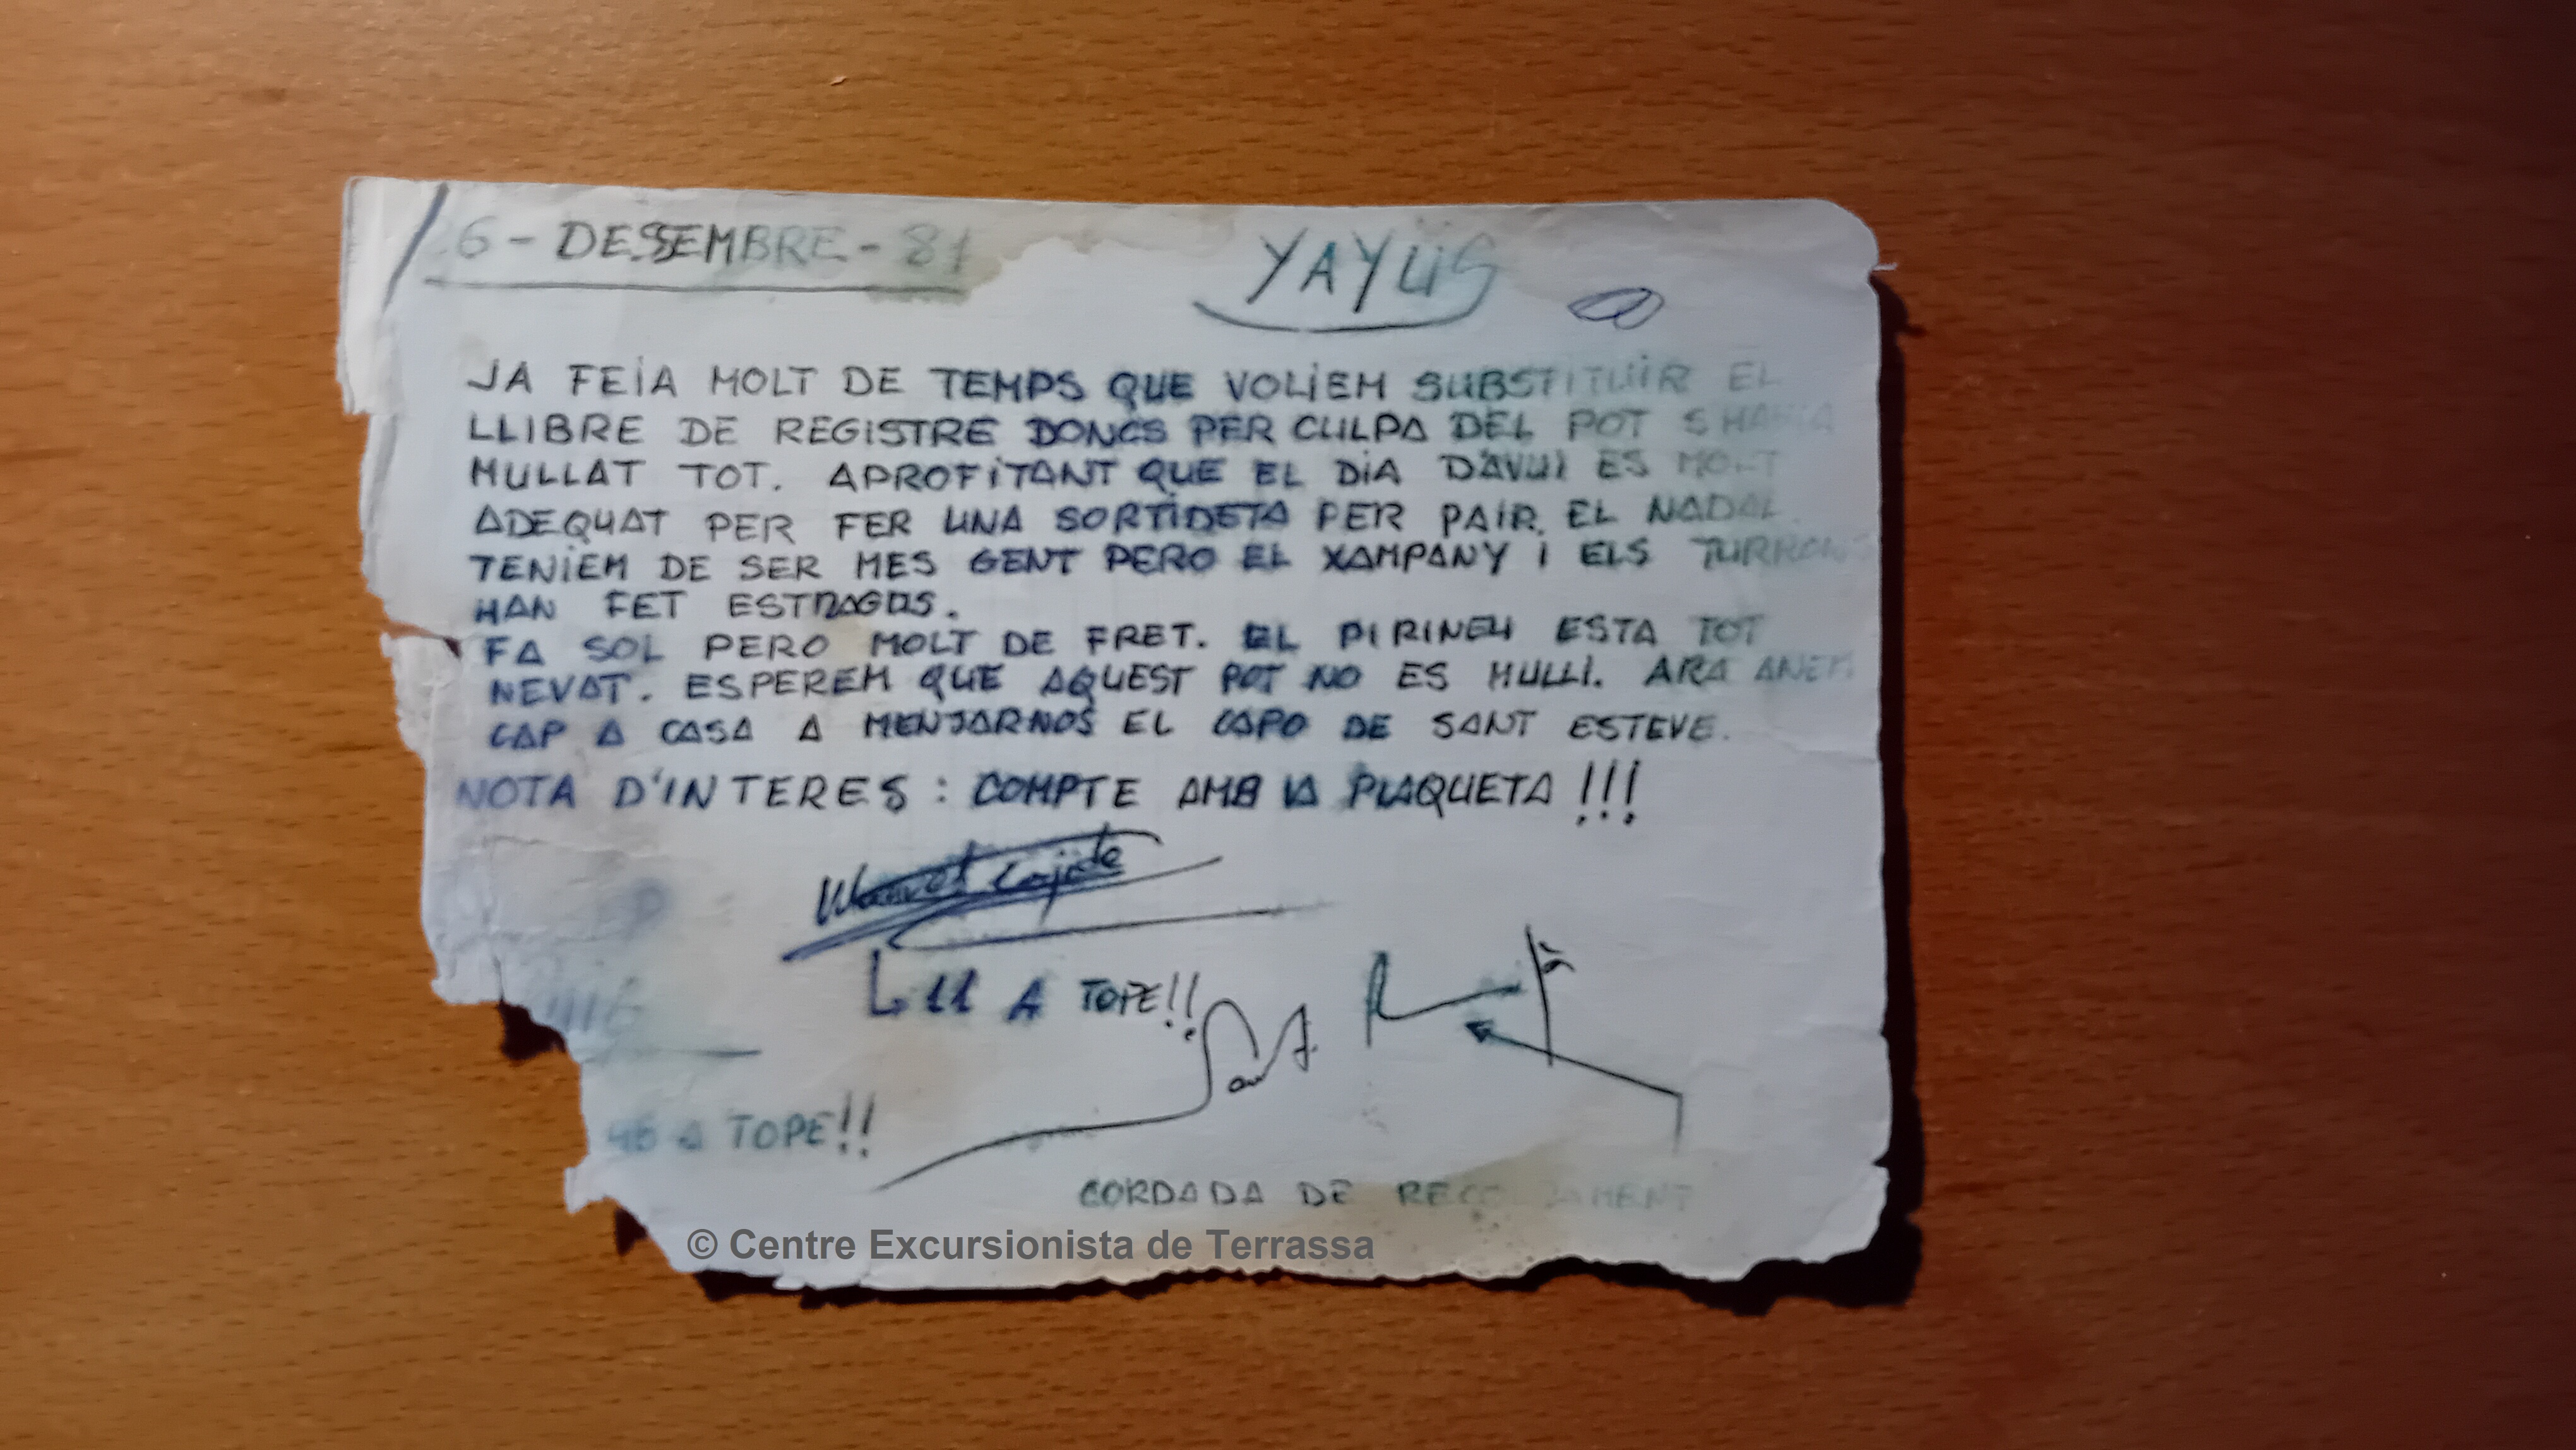 26 - DESEMBRE - 81
YAYUS
JA FEIA MOLT DE TEMPS QUE VOLIEM SUBSTITUIR EL
LLIBRE DE REGISTRE DONCS PER CULPA DEL POT S'HAVIA
MULLAT TOT. APROFITANT QUE EL DIA D'AVUI ES MOLT
ADEQUAT PER FER UNA SORTIDETA PER PAIR EL NADAL.
TENIEM DE SER MES GENT PERO EL XAMPANY I ELS TURRONS
HAN FET ESTRAGOS.
FA SOL PERO MOLT DE FRET. EL PIRINEU ESTA TOT
NEVAT. ESPEREM QUE AQUEST POT NO ES MULLI. ARA ANEM
CAP A CASA A MENJARNOS EL CAPO DE SANT ESTEVE.
NOTA D'INTERES : COMPTE AMB LA PLAQUETA !!!
11 A TOPE!!
A TOPE!!
CORDADA DE
© Centre Excursionista de Terrassa